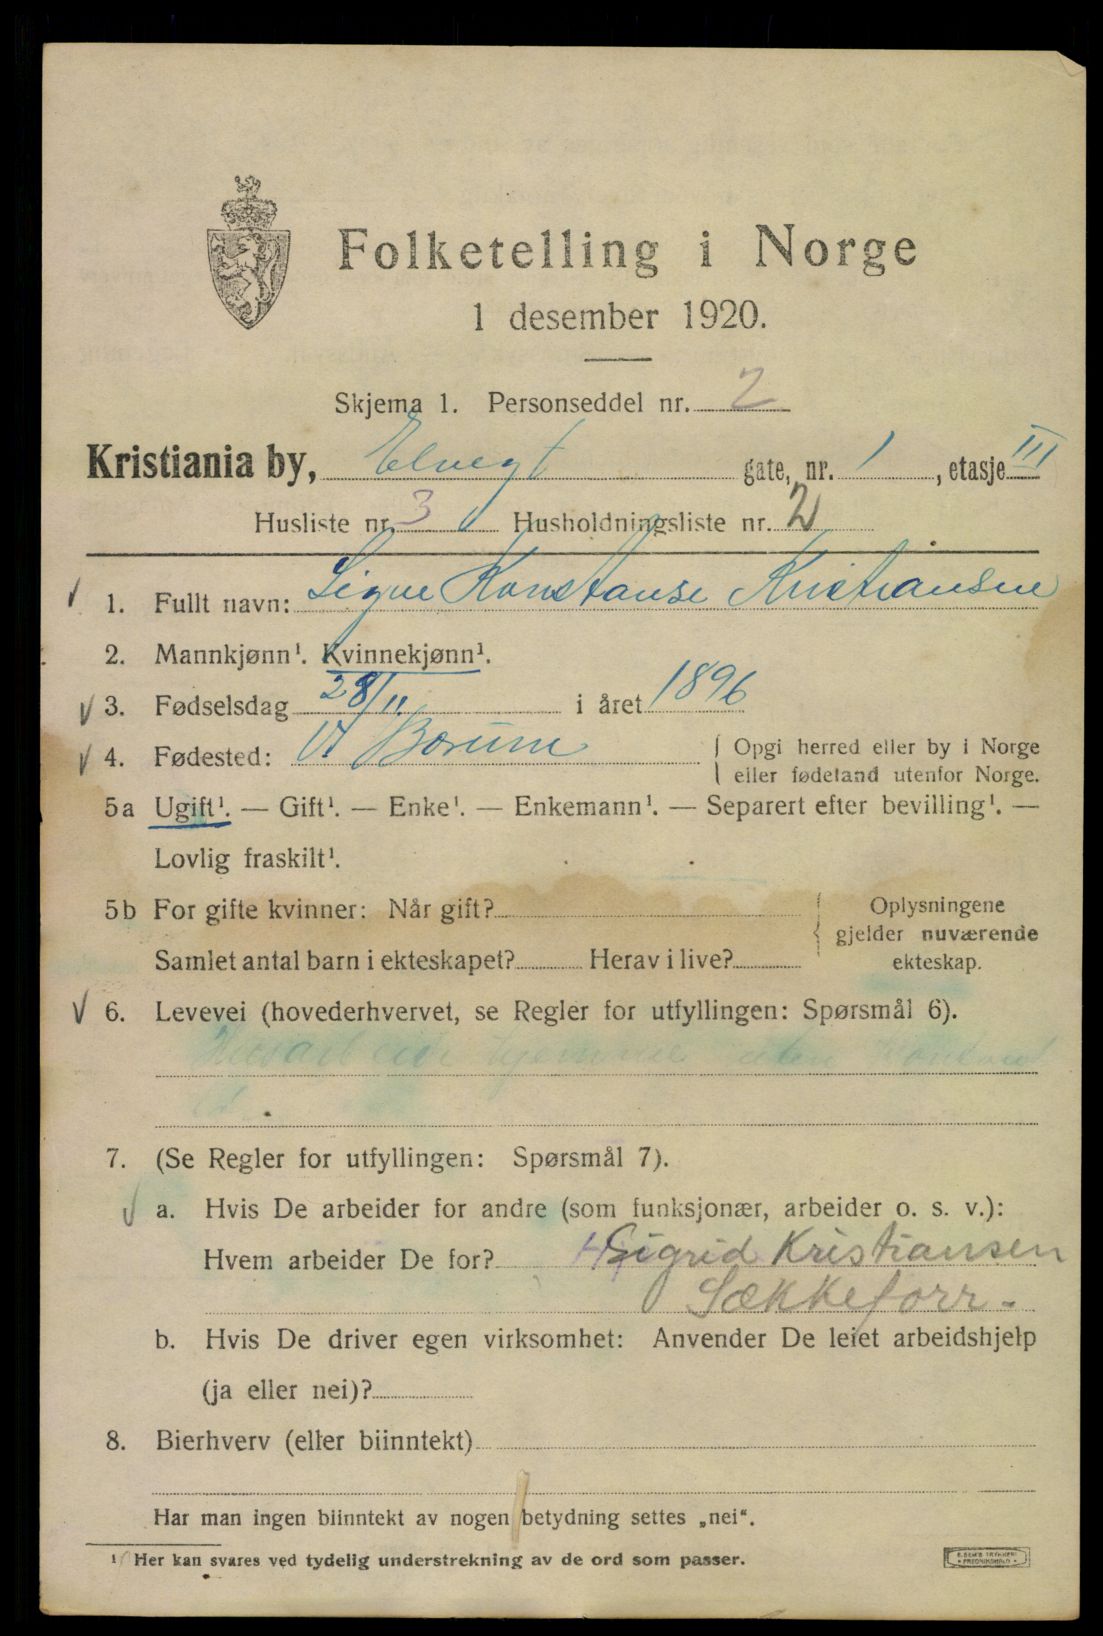 Folketelling i Norge
1 desember 1920.
Skjema 1. Personseddel nr. 2
Kristiania by, Elvegt gate, nr. 1, etasje III
Husliste nr. 3 Husholdningsliste nr. 2
1. Fullt navn: Signe Konstanse Kristiansen
2. Mannkjønn¹. Kvinnekjønn¹.
3. Fødselsdag 28/11 i året 1896
4. Fødested: V Bærum { Opgi herred eller by i Norge
eller fødeland utenfor Norge.
5a Ugift¹. — Gift¹. — Enke¹. — Enkemann¹. — Separert efter bevilling¹. —
Lovlig fraskilt¹.
5b For gifte kvinner: Når gift? { Oplysningene
gjelder nuværende
Samlet antal barn i ekteskapet? Herav i live? ekteskap.
6. Levevei (hovederhvervet, se Regler for utfyllingen: Spørsmål 6).
Husarbeide hjemme uten kontant
7. (Se Regler for utfyllingen: Spørsmål 7).
a. Hvis De arbeider for andre (som funksjonær, arbeider o. s. v.):
Hvem arbeider De for? Sigrid Kristiansen
Sækkeforr.
b. Hvis De driver egen virksomhet: Anvender De leiet arbeidshjelp
(ja eller nei)?
8. Bierhverv (eller biinntekt)
Har man ingen biinntekt av nogen betydning settes „nei“.
¹ Her kan svares ved tydelig understrekning av de ord som passer.